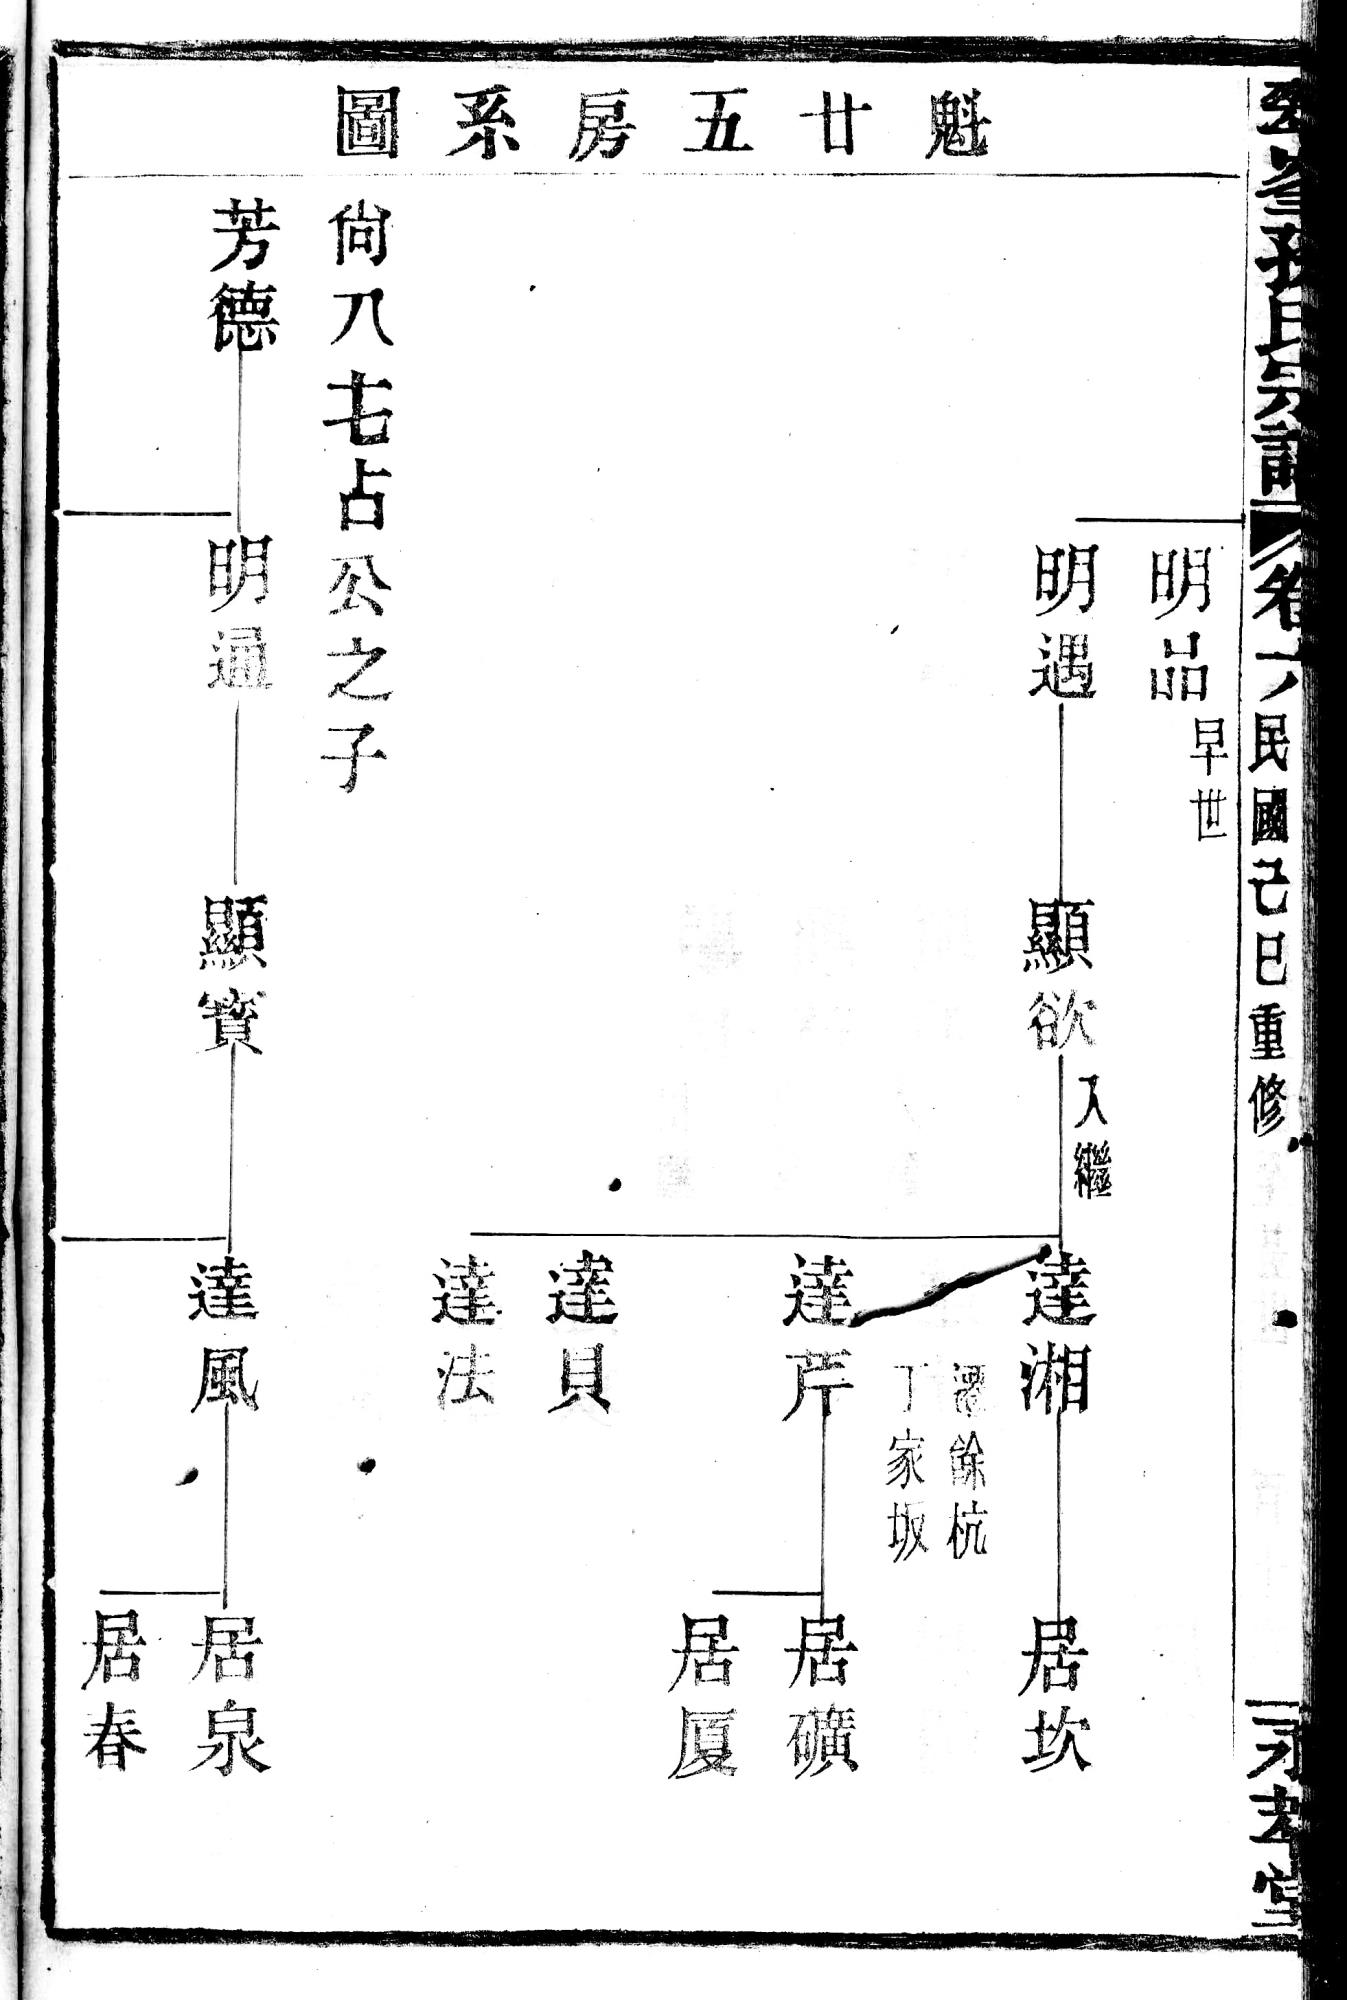 魁廿五房系圖
孫氏宗譜
卷六
民國己巳重修
明品
早世
明遇
顯欲
入繼
達湘
遷餘杭
丁家坂
居坎
達芹
居礦
居厦
達貝
達法
尙八七占公之子
芳德
明通
顯寳
達風
居泉
居春